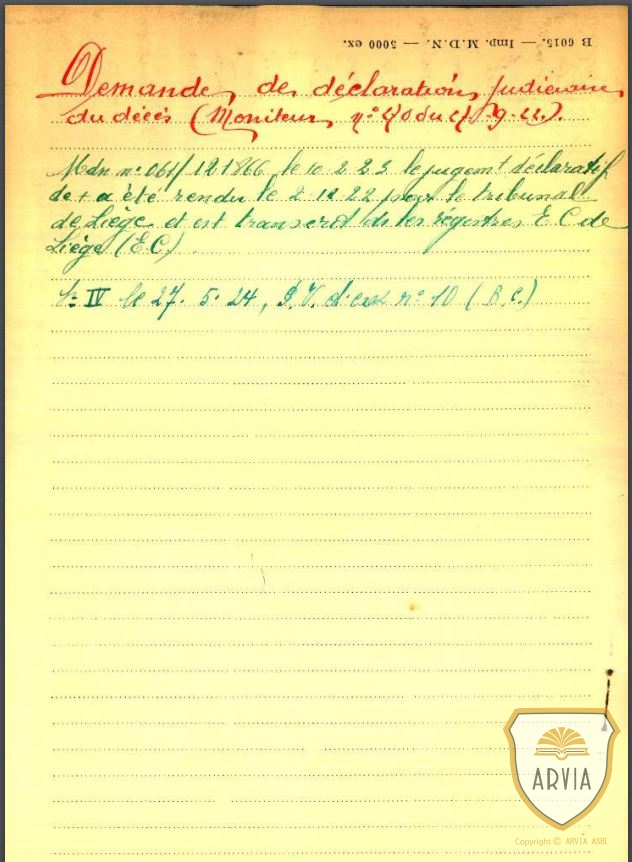 B 6015. — Imp. M.D.N. — 5000 ex.
Demande de déclaration judiciaire
du décès (Moniteur n°
Mdn n° 061/121866 le 10 2 23 le jugemt déclaratif
de + a été rendu le 2 12 22 par le tribunal
de Liège et est transcrit ds les régistres E C de
Liège (E.C.)
IV le 27. 5. 24, P.V. d'ex n° 10 (B.C.)
ARVIA
Copyright © ARVIA ASBL